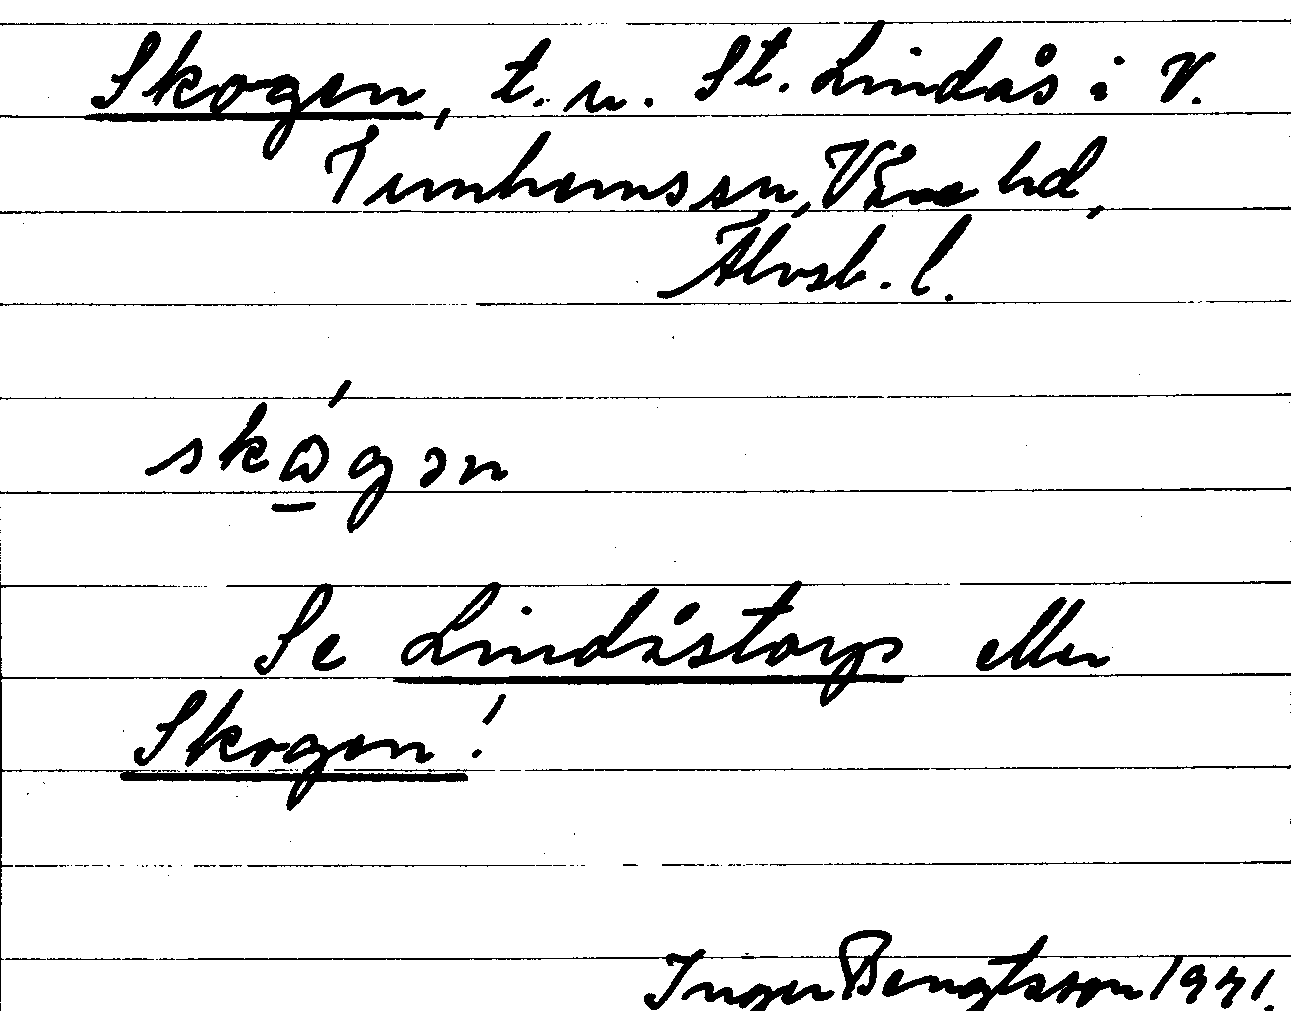 Skogen, t. u. St. Lindås i V.
Tunhems sn, Väne hd,
Älvsb. l.
skώ̱gən
Se Lindåstorp eller
Skogen!
Inger Bengtsson 1941.